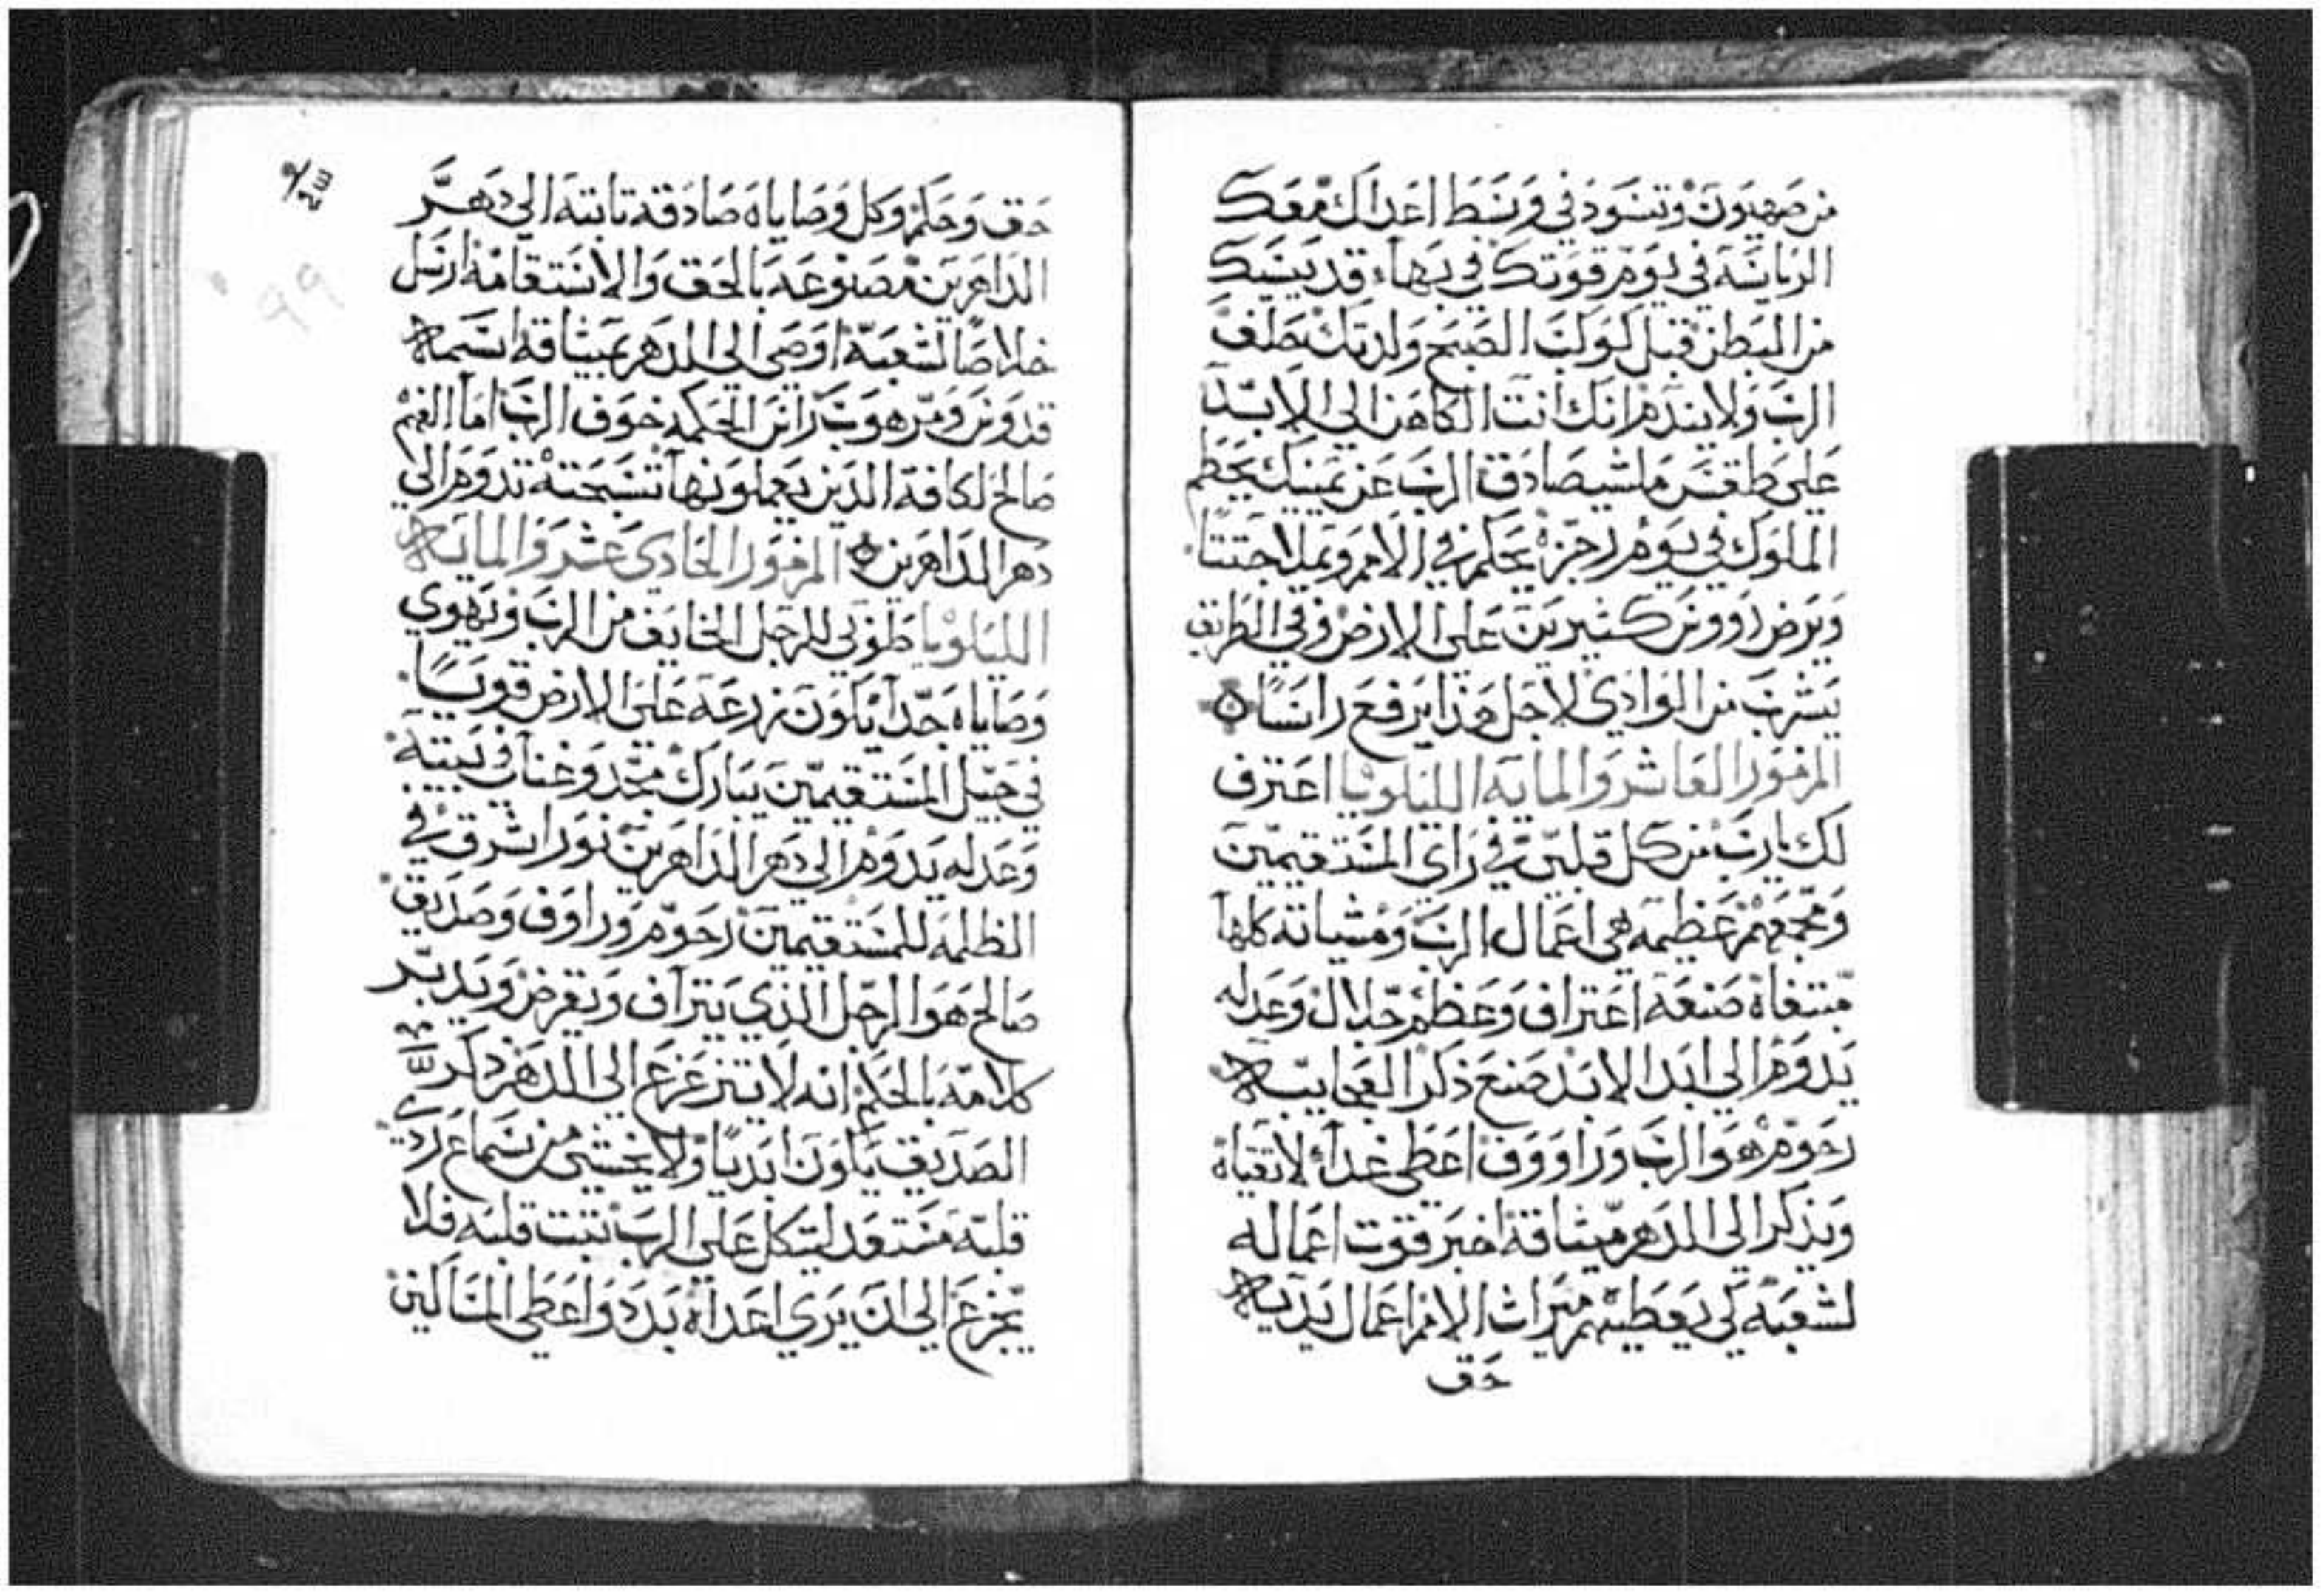 من صهيون وتسود في وسط اعداك معك
الرياسه في يوم قوتك في بهاء قديسيك
من البطن قبل كوكب الصبح ولدتك حلف
الرب ولا يندم انك انت الكاهن الي الابد
علي طقس ملشيصادق الرب عن يمينك يحطم
الملوك في يوم رجزه يحكم في الامم ويملا جثثا
ويرض رووس كثيرين علي الارض وفي الطريق
يشرب من الوادي لاجل هذا يرفع راسا
المزمور العاشر والمايه الليلويا اعترف
لك يارب من كل قلبي في راي المستقيمين
ومجمعهم عظيمه هي اعمال الرب ومشياته كلها
مبتغاه صنعة اعتراف وعظم جلال وعدله
يدوم الي ابد الابد صنع ذكر العجايبه
رحوم هو الرب وراووف اعطي غداء لاتقياه
ويذكر الي الدهر ميثاقه اخبر قوت اعماله
لشعبه لكي يعطيهم ميراث الامم اعمال يديه
حق
حق وحكم وكل وصاياه صادقه تابته الي دهر
الداهرين مصنوعه بالحق والاستقامه ارسل
خلاصا لشعبه اوصي الي الدهر بميثاقه اسمه
قدوس ومرهوب راس الحكمه خوف الرب اما الفهم
صالح لكافة الذين يعملون بها تسبحته تدوم الي
دهر الداهرين المزمور الحادي عشر والمايه
الليلويا طوبي للرجل الخايف من الرب ويهوي
وصاياه جدا يكون زرعه علي الارض قويا
في جيل المستقيمين يبارك مجد وغنا في بيته
وعدله يدوم الي دهر الداهرين نور اشرق في
الظلمه للمستقيمين رحوم وراوف وصديق
صالح هو الرجل الذي يتراف ويقرض ويدبر
كلامه بالحكم انه لا يتزعزع الي الدهر ذكر
الصديق يكون ابديا ولا يخشي من سماع ردي
قلبه مستعد ليتكل علي الرب تبت قلبه فلا
يجزع الي ان يري اعداه بدد واعطي المساكين
٩٩